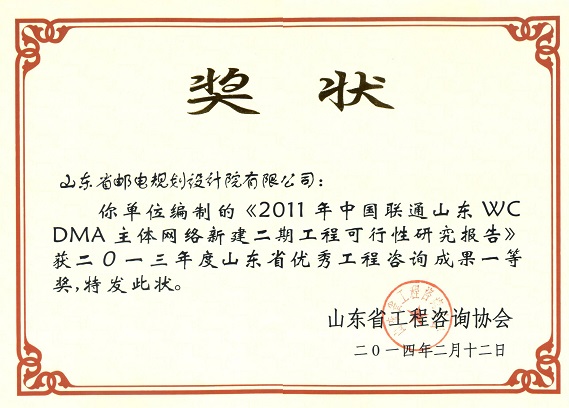 奖状
山东省邮电规划设计院有限公司：
你单位编制的《2011年中国联通山东WC
DMA主体网络新建二期工程可行性研究报告》
获二〇一三年度山东省优秀工程咨询成果一等
奖，特发此状。
山东省工程咨询协会
二〇一四年二月十二日